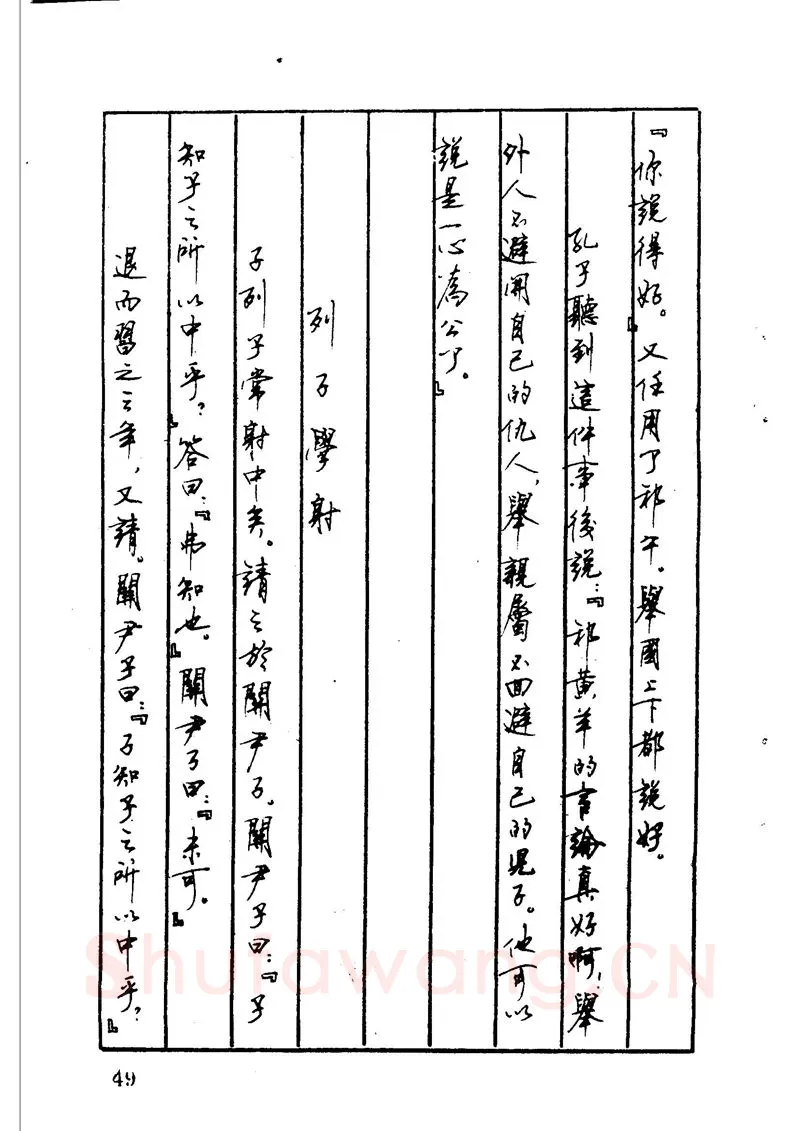 『你說得好。』又任用了祁午。舉國上下都說好。
孔子聽到這件事後說：『祁黃羊的言論真好啊！舉
外人不避開自己的仇人，舉親屬不回避自己的児子。他可以
說是一心為公了。』
列子學射
子列子常射中矣。請之於關尹子。關尹子曰：『子
知子之所以中乎？』答曰：『弗知也。』關尹子曰：『未可。』
退而習之三年，又請。關尹子曰：『子知子之所以中乎？』
49
Shufawang.CN